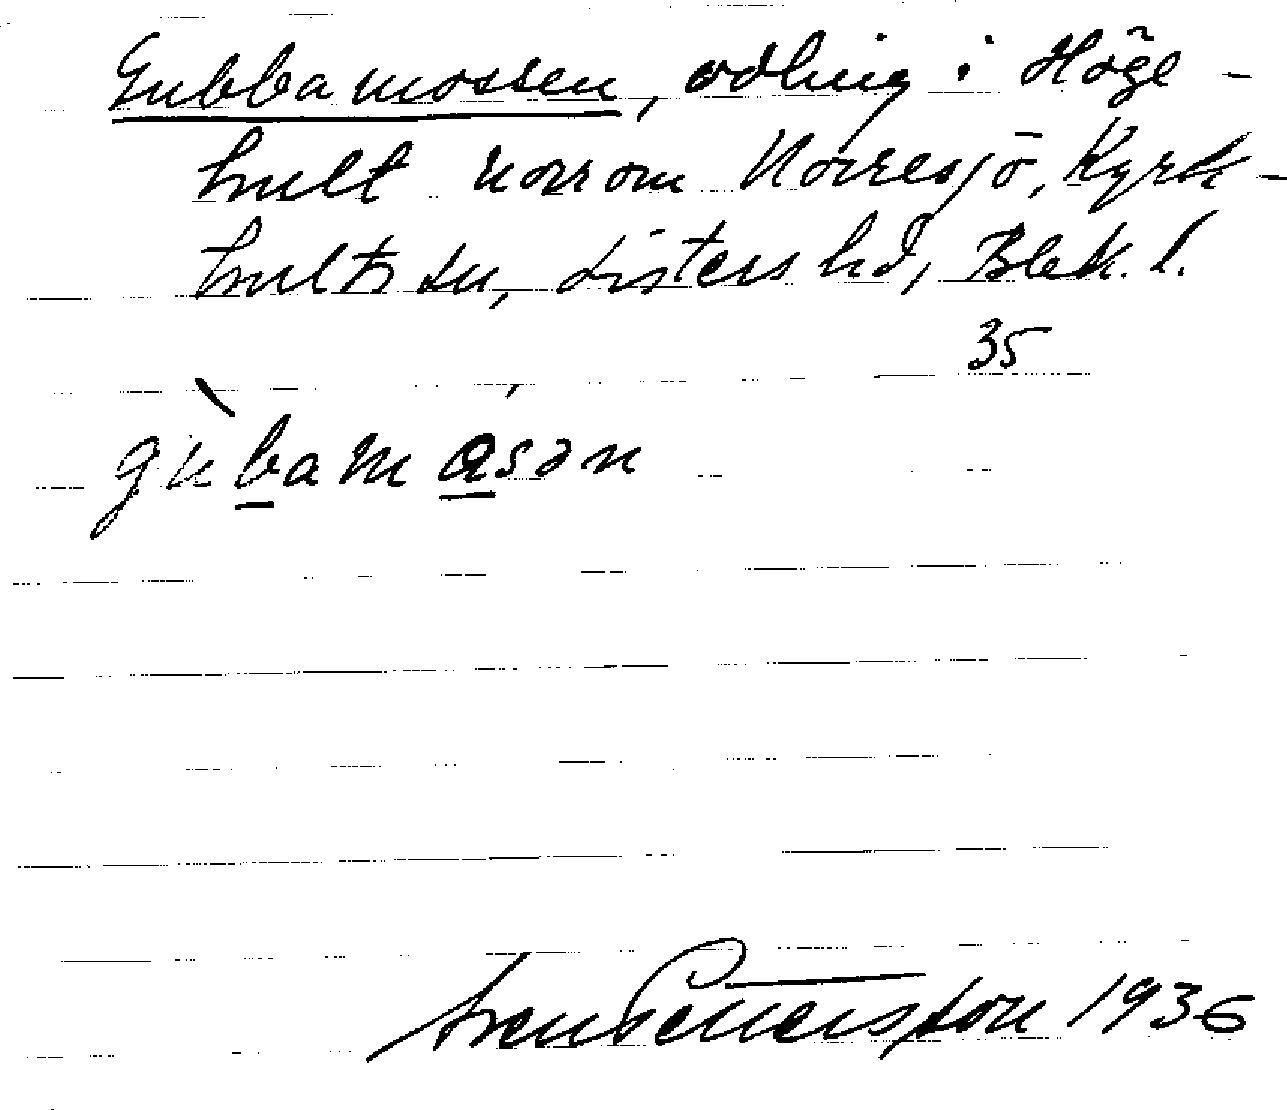 Gubbamossen, odling i Höge-
hult norr om Norresjö, Kyrk-
hults sn, Listers hd, Blek. l.
35
gùbamåsən
Sven Pettersson 1936